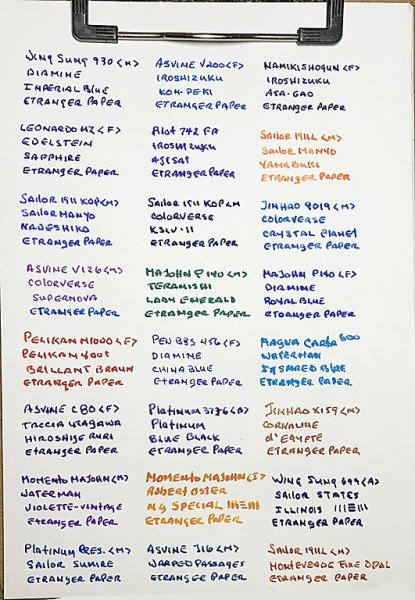 Wing Sung 930 <M>
Diamine
Imperial Blue
Etranger Paper
Asvine V200 <F>
Iroshizuku
Kon-Peki
Etranger Paper
Namiki Shogun <F>
Iroshizuku
Asa-Gao
Etranger Paper
Leonardo MZ <F>
Edelstein
Sapphire
Etranger Paper
Pilot 742 FA
Iroshizuku
Ajisai
Etranger Paper
Sailor 1911L <M>
Sailor Manyo
Yamabuki
Etranger Paper
Sailor 1911 KOP <M>
Sailor Manyo
Nadeshiko
Etranger Paper
Sailor 1911 KOP M
Colorverse
Etranger Paper
Jinhao 9019 <M>
Colorverse
Crystal Planet
Etranger Paper
Asvine V126 <M>
Colorverse
Supernova
Etranger Paper
Majohn P140 <M>
Teranishi
Lady Emerald
Etranger Paper
Majohn P140 <F>
Diamine
Royal Blue
Etranger Paper
Pelikan M1000 <F>
Pelikan 4001
Brillant Braun
Etranger Paper
Pen BBS 456 <F>
Diamine
China Blue
Etranger Paper
Magna Carta 600
Waterman
Inspired Blue
Etranger Paper
Asvine C80 <F>
Taccia Utagawa
Hiroshige Ruri
Etranger Paper
Platinum 3776 <B>
Platinum
Blue Black
Etranger Paper
Jinhao X159 <M>
Cornaline
d'Egypte
Etranger Paper
Momento Majohn <M>
Waterman
Violette-Vintage
Etranger Paper
Momento Majohn <I>
Robert Oster
NG Special
Etranger Paper
Wing Sung 699 <A>
Sailor States
Illinois
Etranger Paper
Platinum Pres. <M>
Sailor Sumire
Etranger Paper
Asvine J16 <M>
Warped Passages
Etranger Paper
Sailor 1911L <M>
Monteverde Fire Opal
Etranger Paper